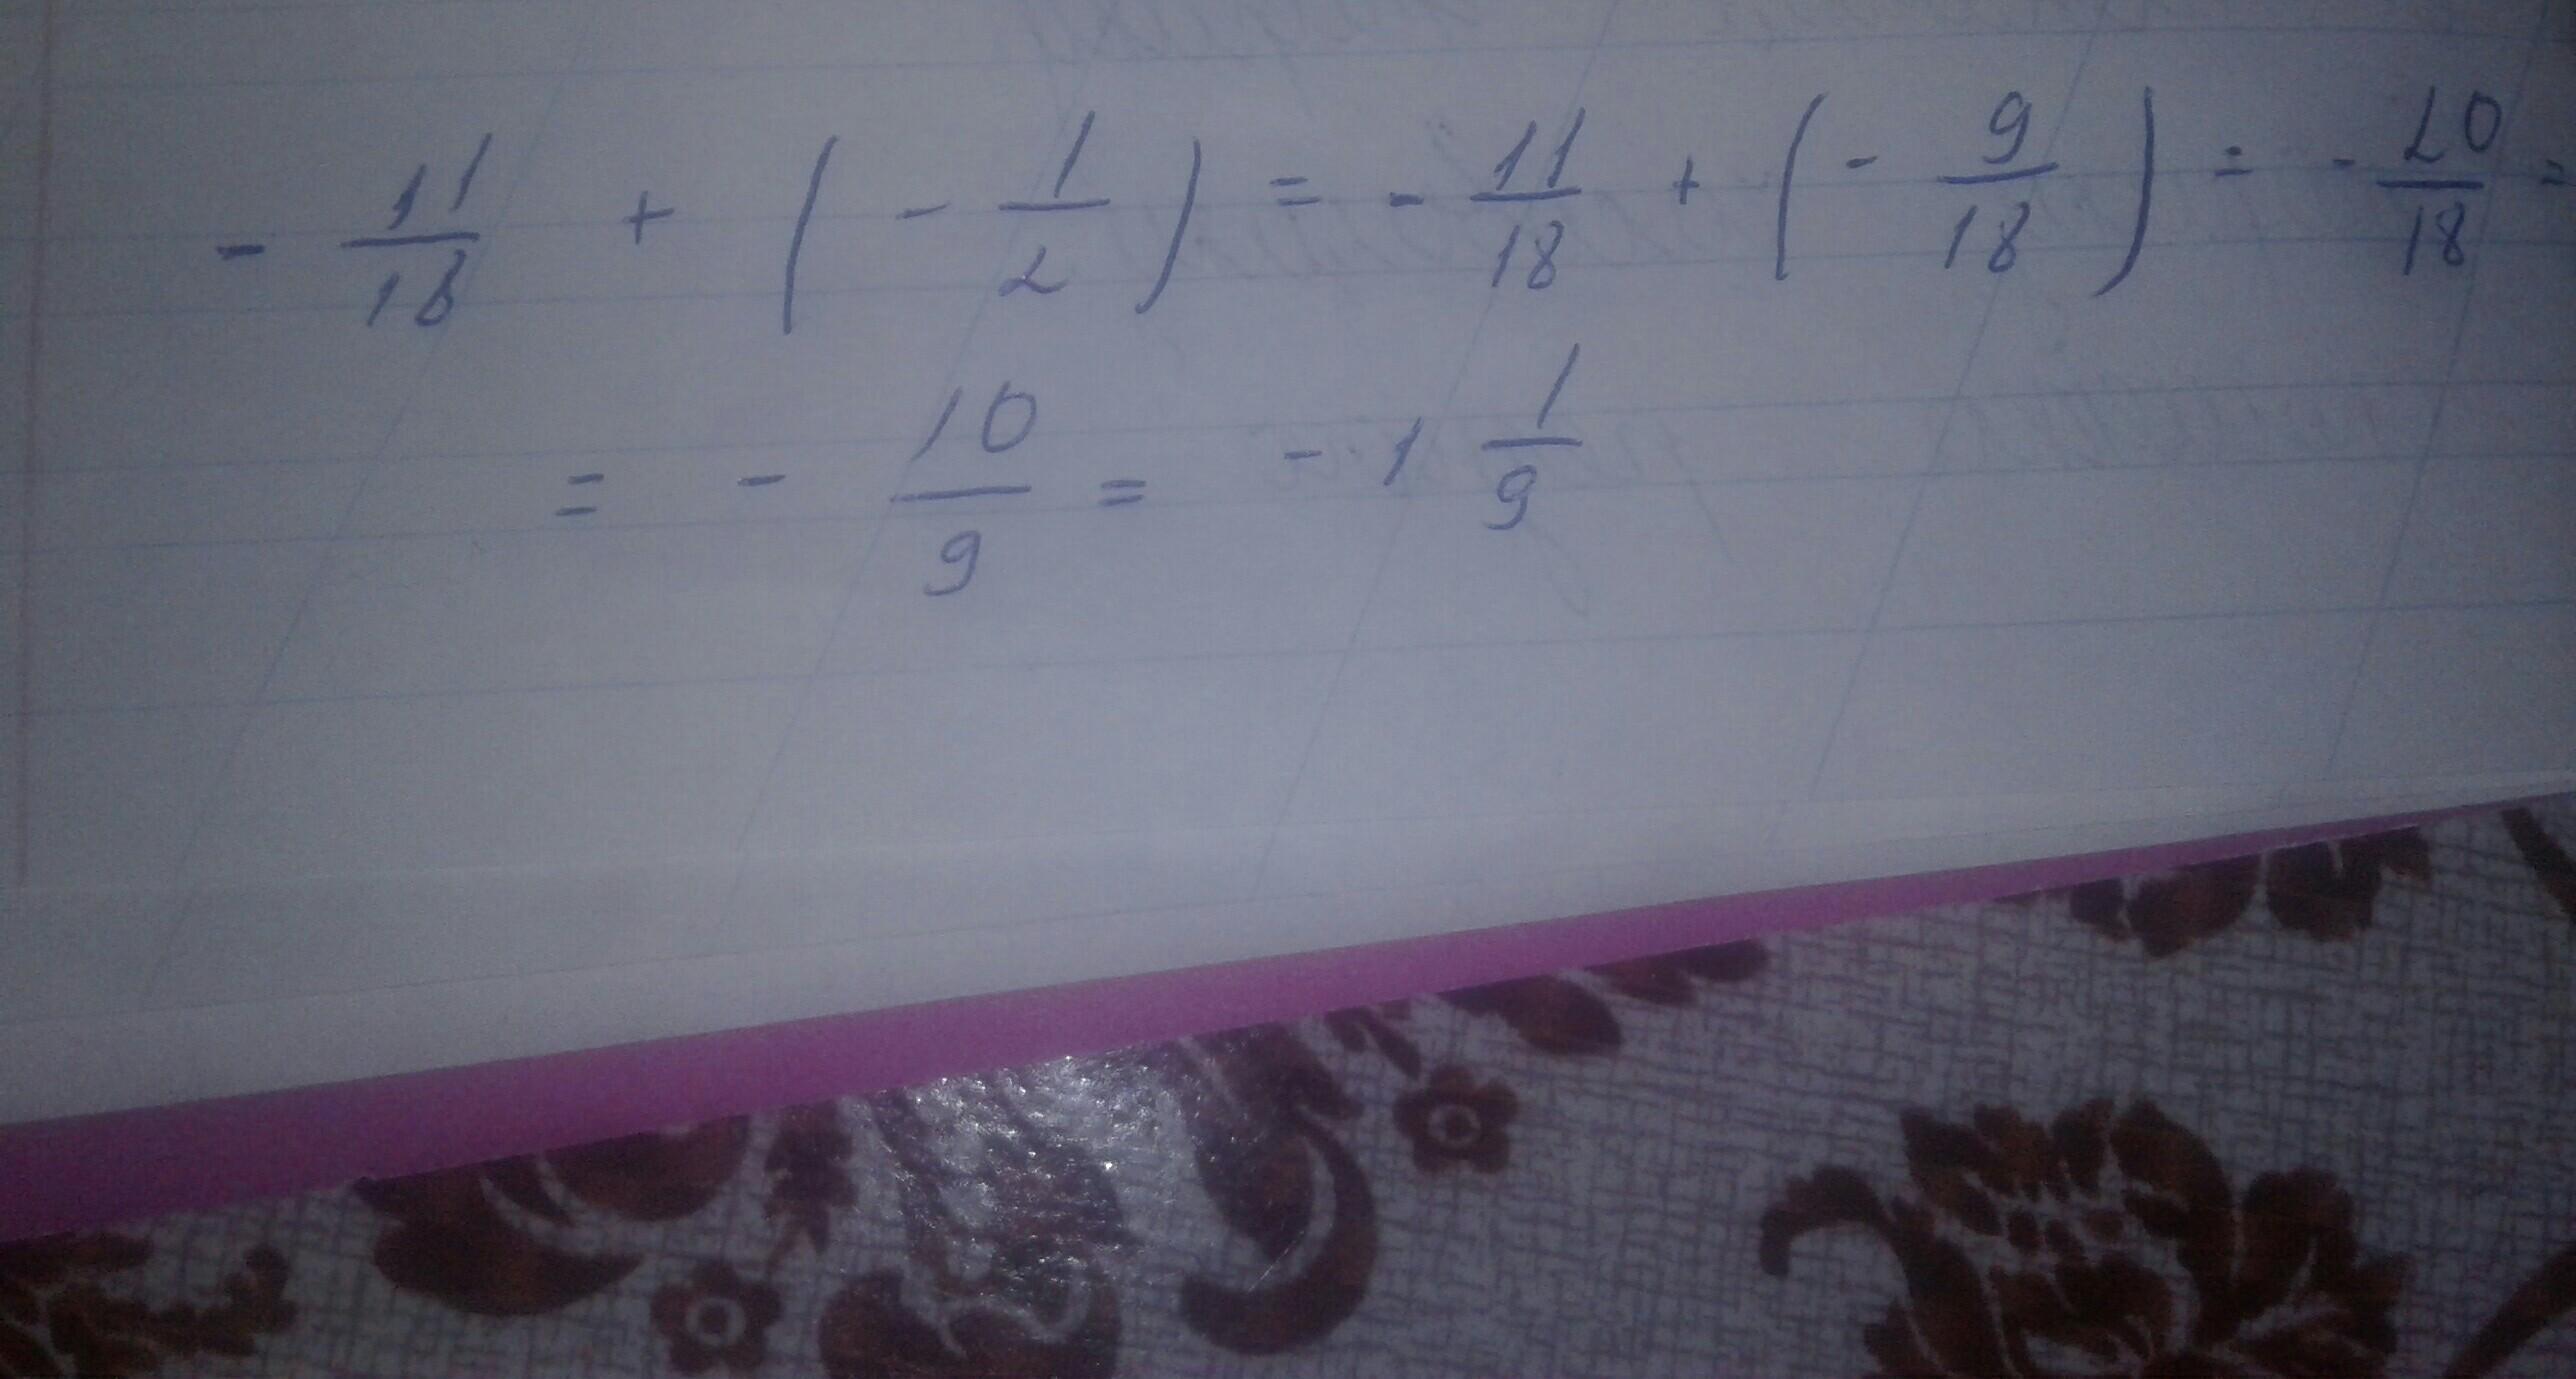 - 11/18 + ( - 1/2 ) = - 11/18 + ( - 9/18 ) = - 20/18 =
= - 10/9 = - 1 1/9